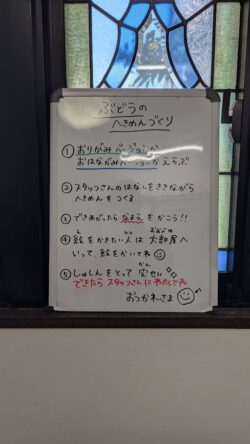 ぶどうの
へきめんづくり
① おりがみバージョンか
おはながみバージョンかえらぶ
② スタッフさんのはなしをききながら
へきめんをつくる
③ できあがったらなまえをかこう!!
④ 絵をかきたい人は 大部屋へ
いって、絵をかいてね
⑤ しゃしんをとって 完せい
できたらスタッフさんにわたしてネ
おつかれさま